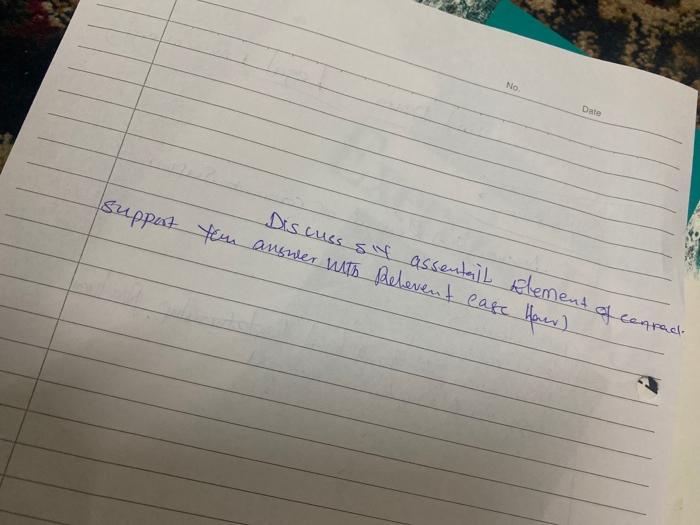 No.
Date
Discuss six assentail Element of conract.
support your answer with Relevent case (law)